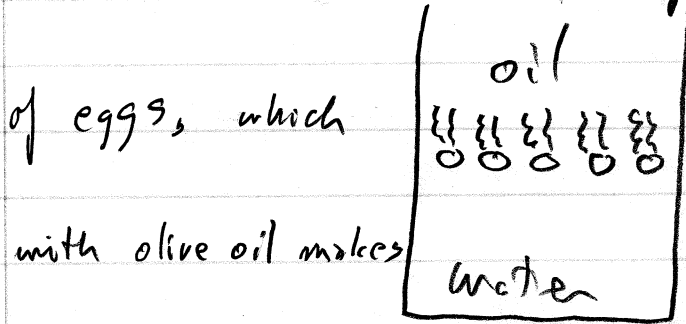 oil
of eggs, which
with olive oil makes
water